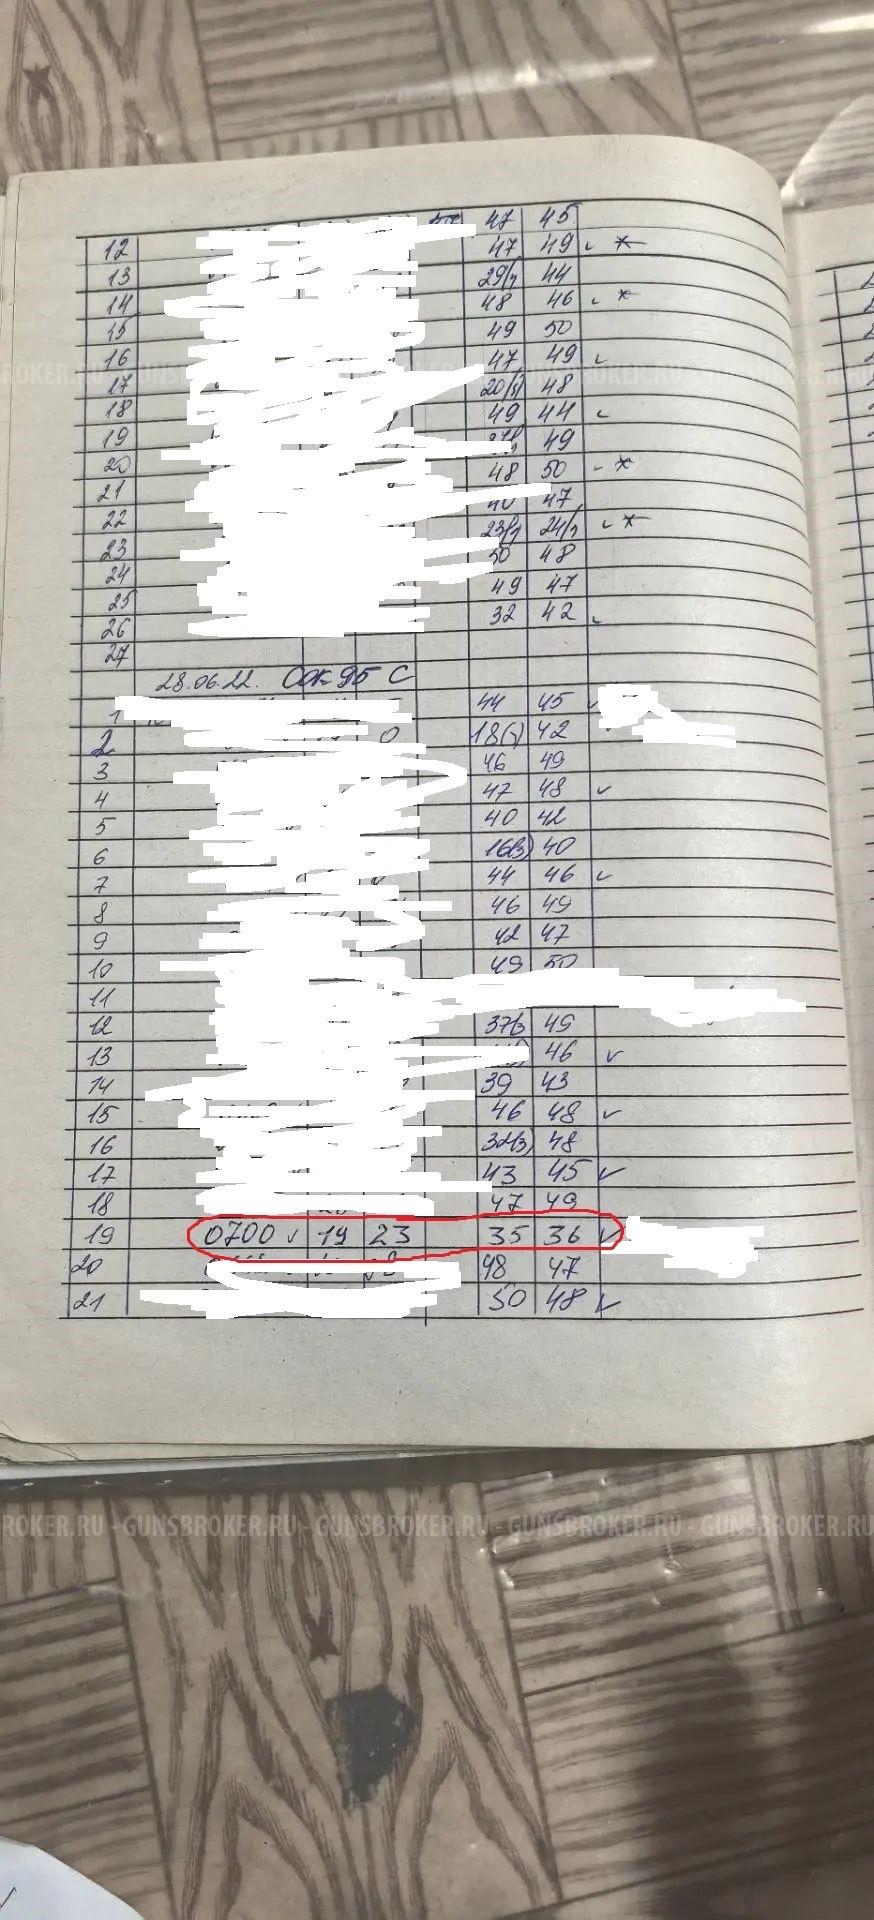 47 45
12 47 49 ✓ *
13 29/1 44
14 48 46 ✓ *
15 49 50
16 47 49 ✓
17 48
18 49 44 ✓
19 49
20 48 50 - *
21 47
22 23/1 24/1 ✓ *
23 50 48
24 49 47
25 32 42 ✓
26
27
28.06.22. Сок 95 С
1 44 45
2 0 42
3 46 49
4 47 48 ✓
5 40 42
6 16(3) 40
7 44 46 ✓
8 46 49
9 42 47
10 49 50
11
12 49
13 46 ✓
14 39 43
15 46 48 ✓
16 32(3) 48
17 43 45 ✓
18 47 49
19 0700 ✓ 19 23 35 36 ✓
20 48 47
21 50 48 ✓
ROKER.RU - GUNSBROKER.RU - GUNSBROKER.RU - GUNSBROKER.RU - GUNSBROKER.RU